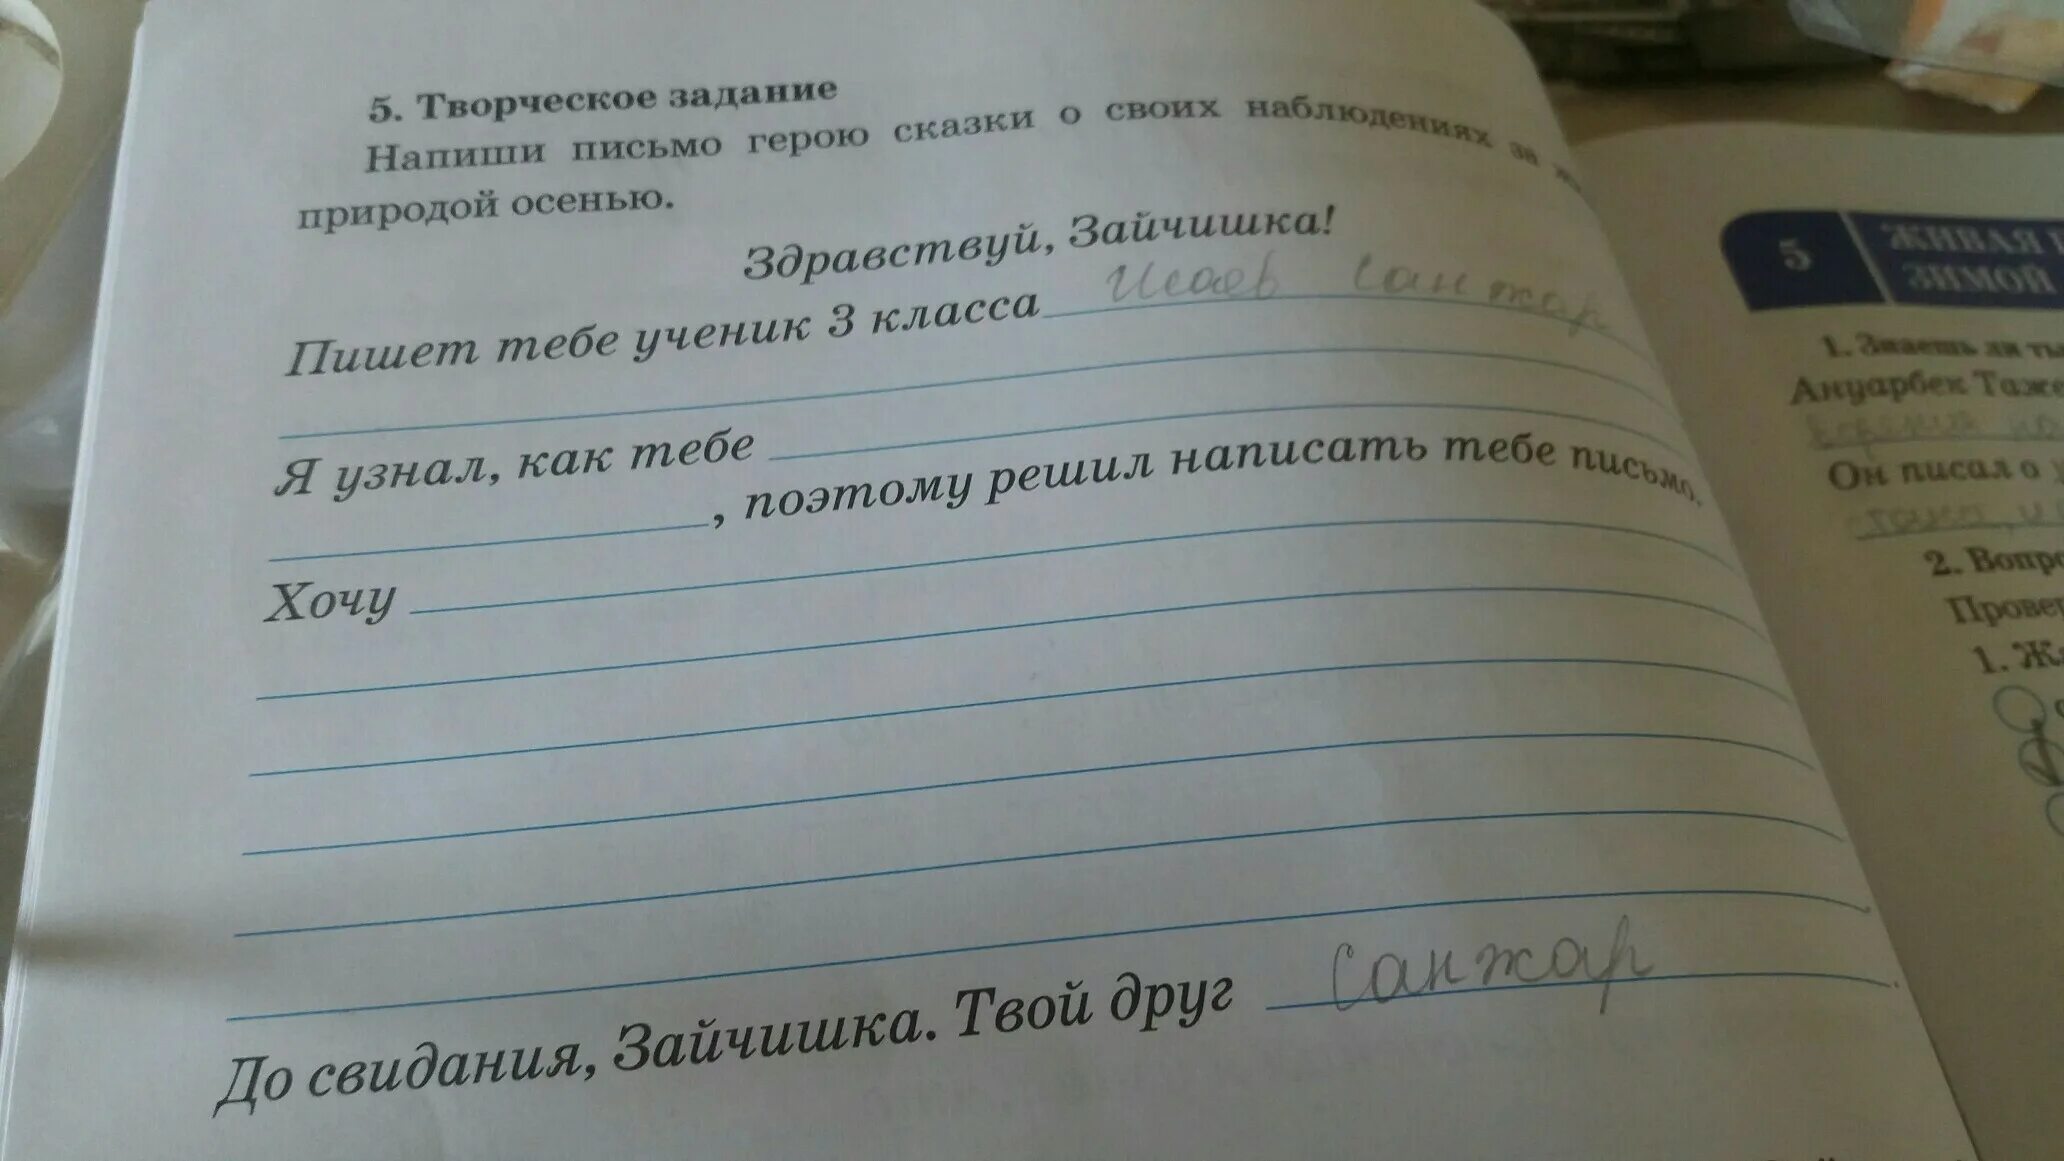 5. Творческое задание
Напиши письмо герою сказки о своих наблюдениях за
природой осенью.
Здравствуй, Зайчишка!
Пишет тебе ученик 3 класса Исаев Санжар
Я узнал, как тебе
, поэтому решил написать тебе письмо.
Хочу
До свидания, Зайчишка. Твой друг Санжар
5 ЖИВАЯ
ЗИМОЙ
1. Знаешь ли ты
Ануарбек Таже
Он писал о
2. Вопро
Провер
1. Ж